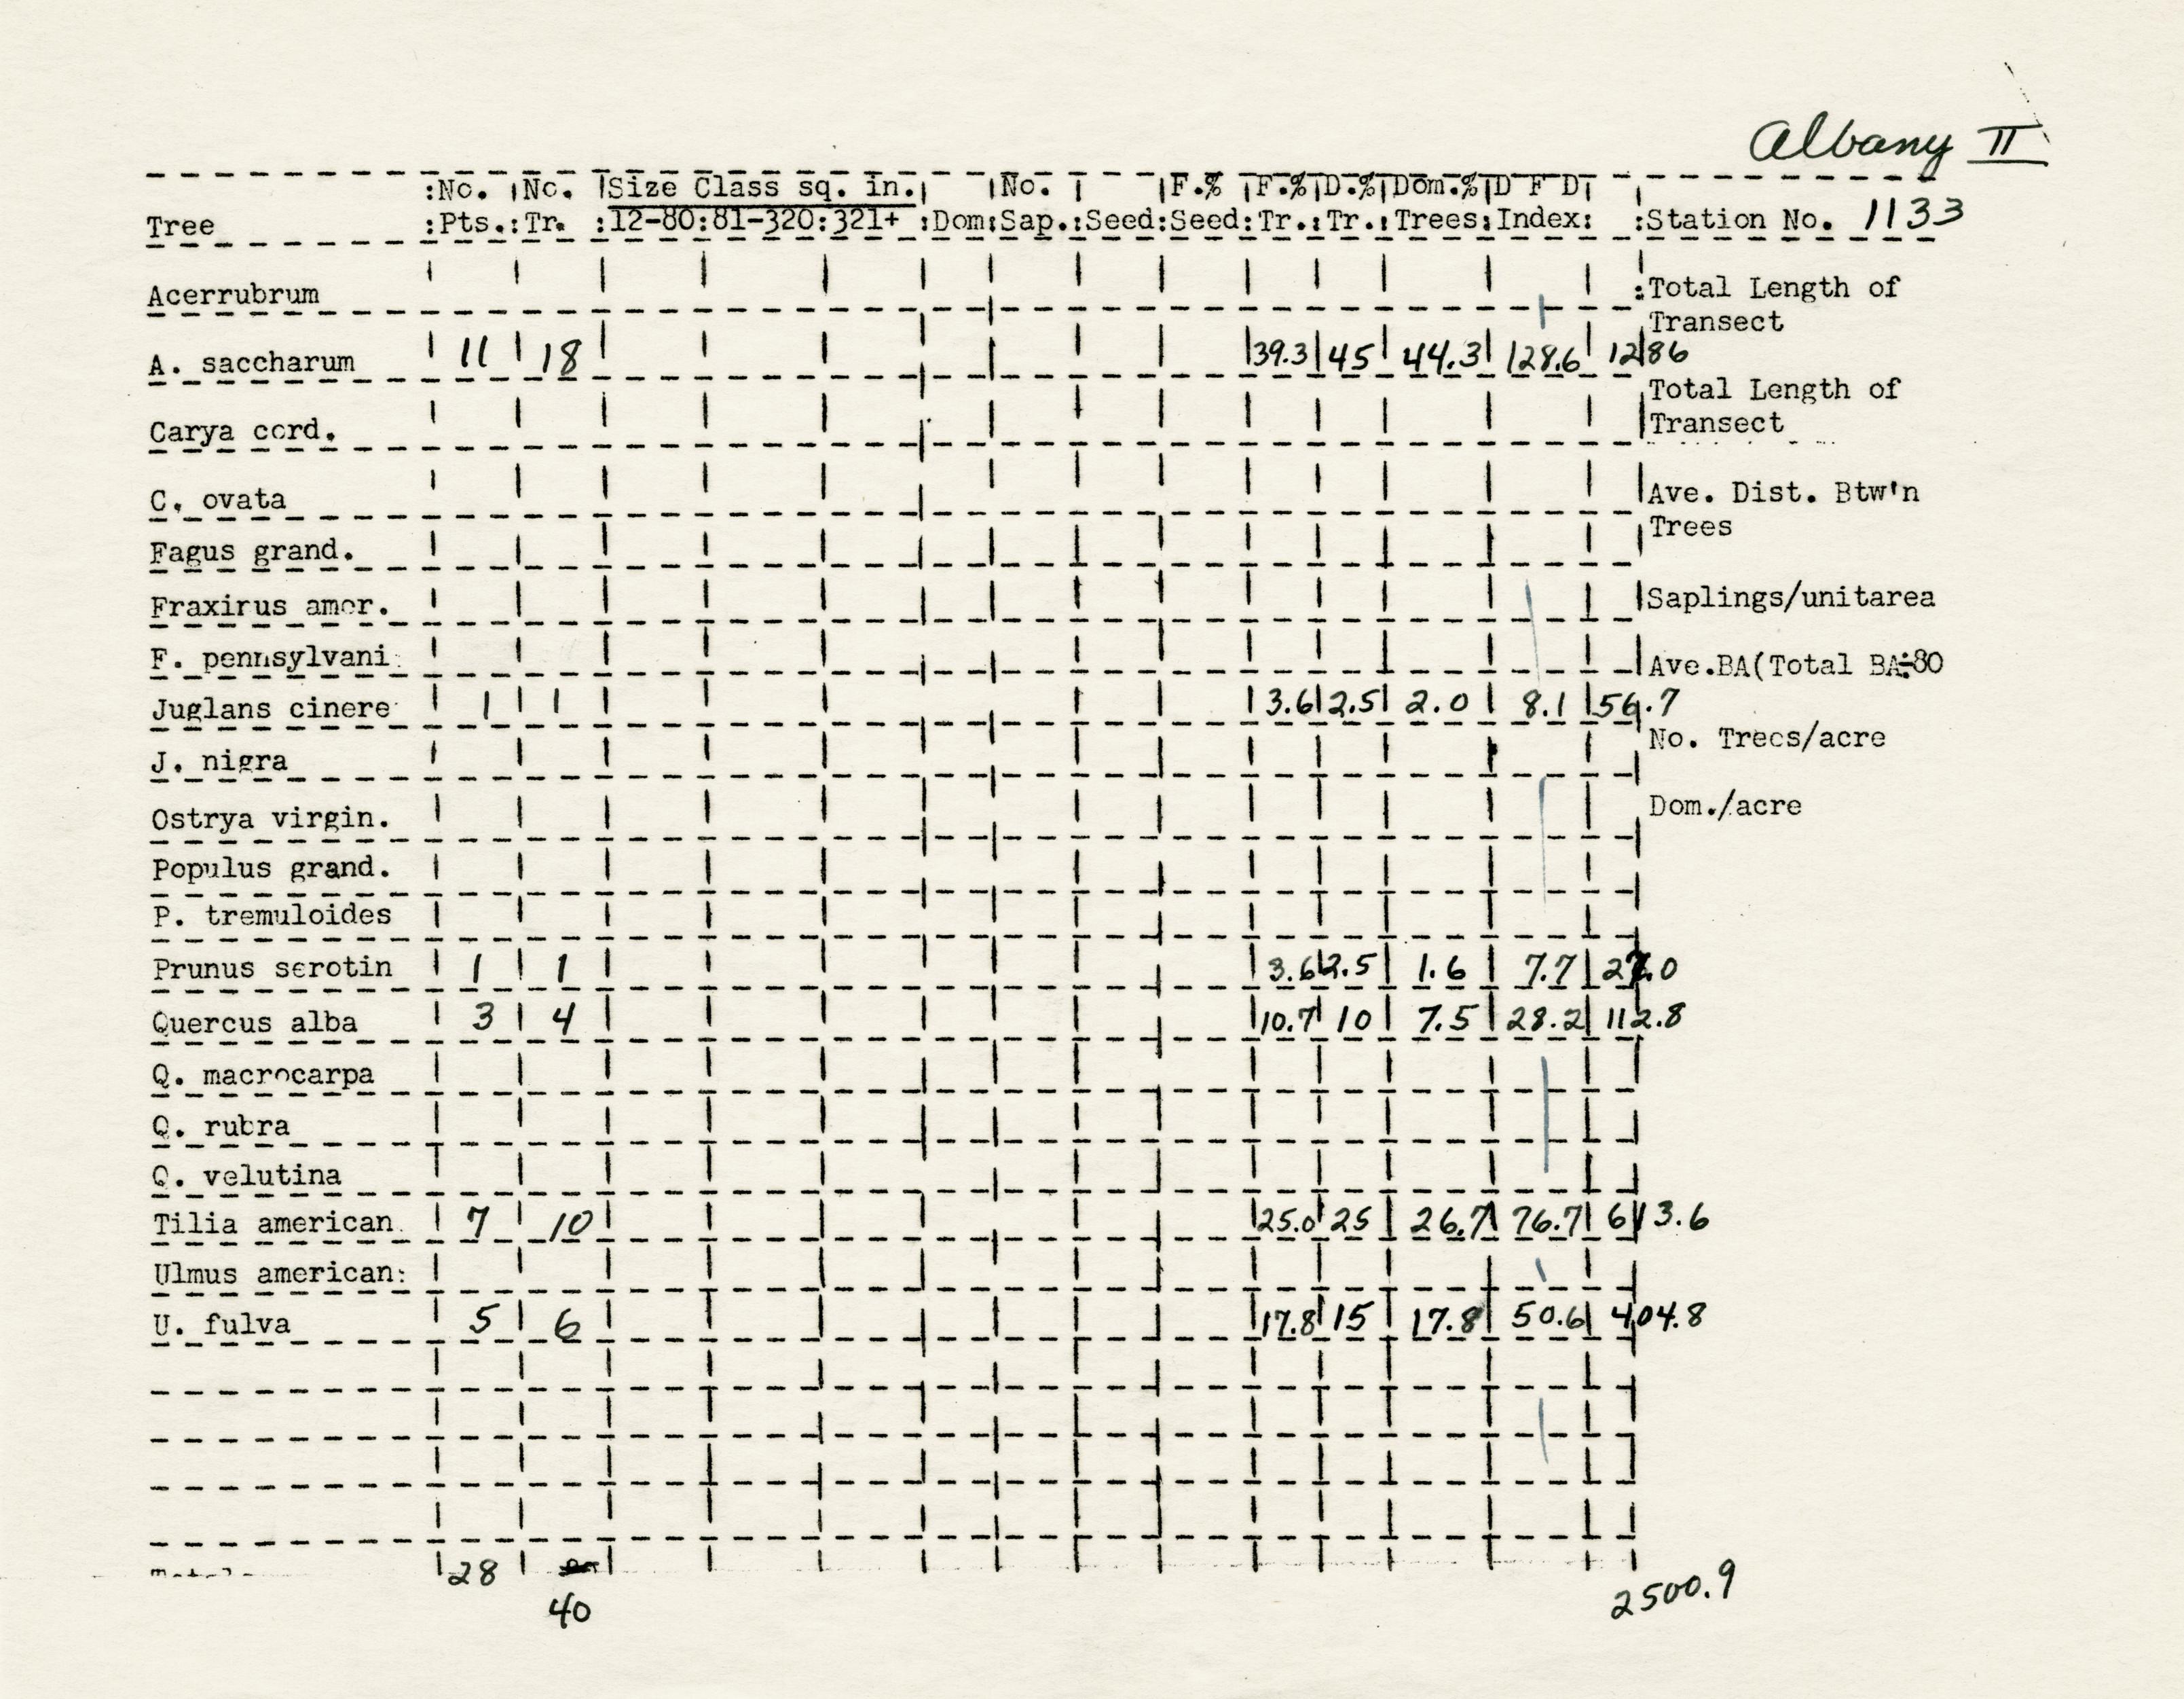 Albany II
No. No. Size Class sq. in. No. F.% F.% D.% Dom.% D F D
Tree Pts. Tr. 12-80:81-320:321+ Dom Sap. Seed Seed Tr. Tr. Trees Index Station No. 1133
Acerrubrum Total Length of
Transect
A. saccharum 11 18 39.3 45 44.3 128.6 1286
Total Length of
Carya cord. Transect
C. ovata Ave. Dist. Btw'n
Trees
Fagus grand.
Fraxirus amer. Saplings/unitarea
F. pennsylvani Ave.BA(Total BA÷80
Juglans cinere 1 1 3.6 2.5 2.0 8.1 56.7
No. Trees/acre
J. nigra
Ostrya virgin. Dom./acre
Populus grand.
P. tremuloides
Prunus serotin 1 1 3.6 2.5 1.6 7.7 27.0
Quercus alba 3 4 10.7 10 7.5 28.2 112.8
Q. macrocarpa
Q. rubra
Q. velutina
Tilia american 7 10 25.0 25 26.7 76.7 613.6
Ulmus american
U. fulva 5 6 17.8 15 17.8 50.6 404.8
28
40 2500.9